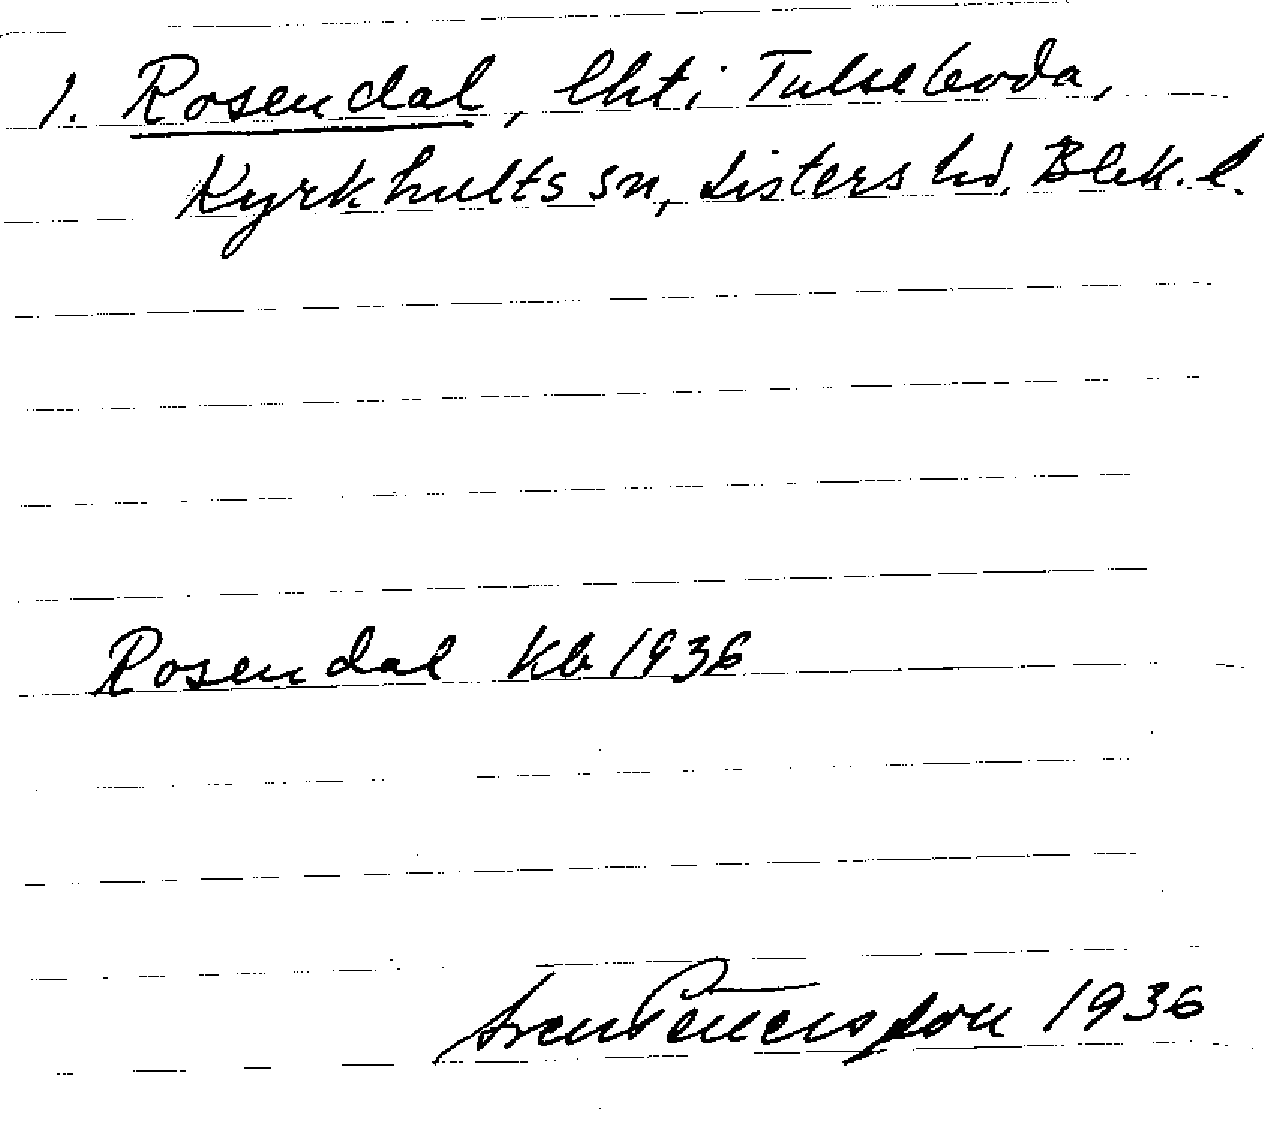 1. Rosendal, lht i Tulseboda,
Kyrkhults sn, Listers hd, Blek. l.
Rosendal kb 1936
Sven Pettersson 1936